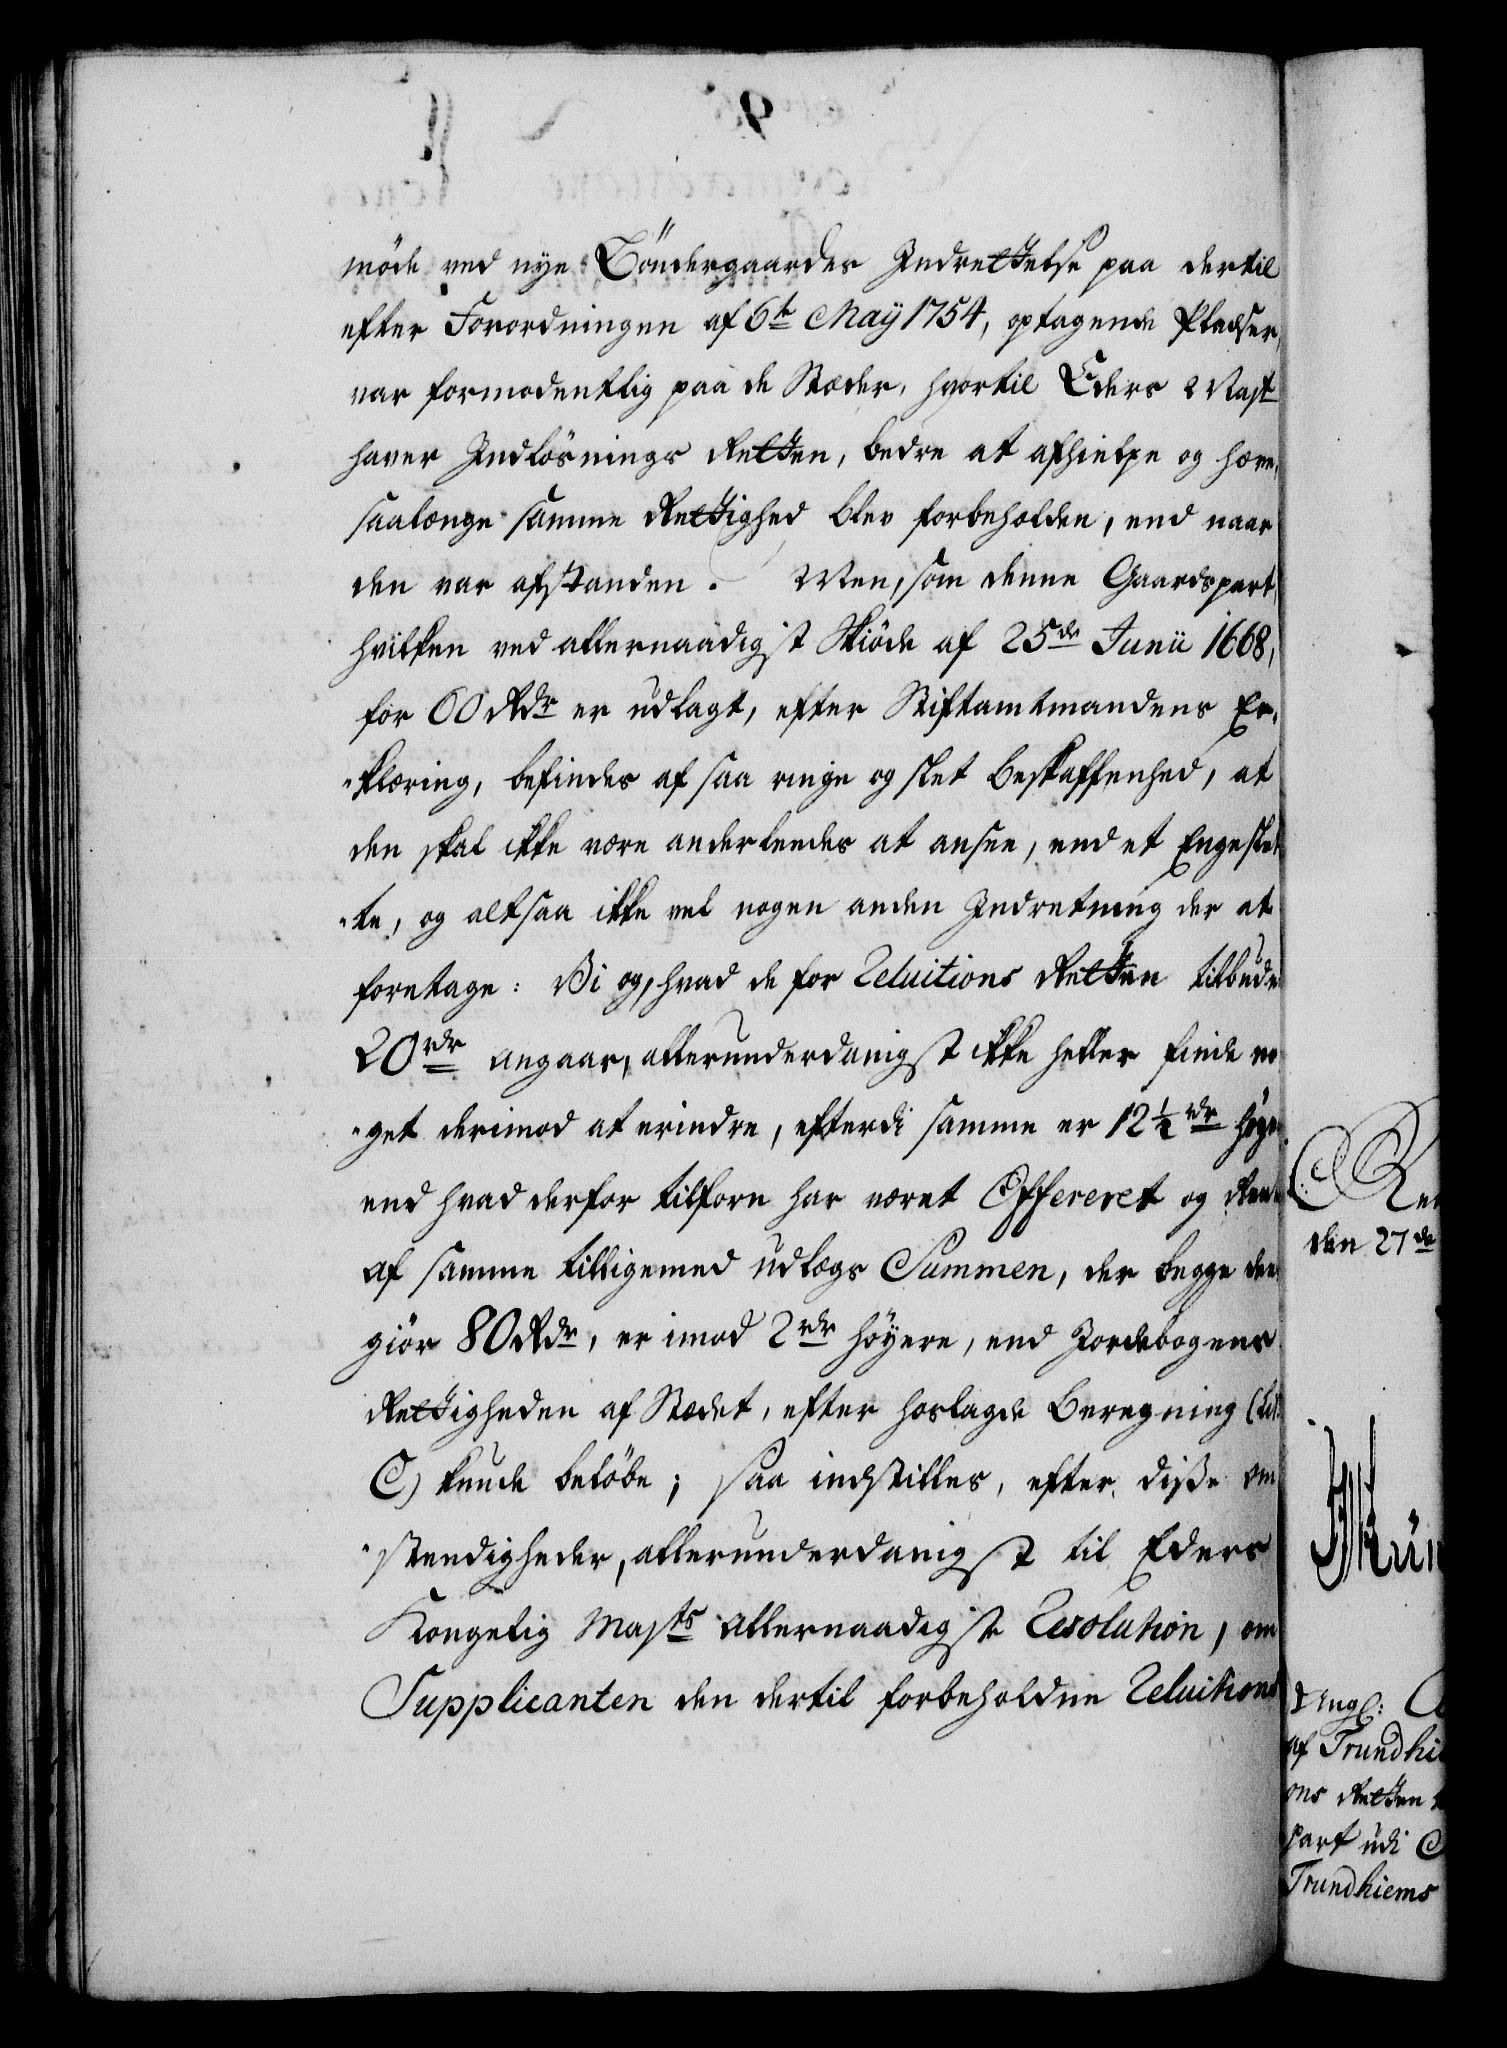 möde ved nye Böndergaardes Indrettelse paa dertil
efter Forordningen af 6te Maÿ 1754, optagende Pladser,
var formodentlig paa de Stæder, hvortil Eders Mayt
haver Indlösnings Retten, bedre at afhielpe og hæve,
saalænge samme Rettighed blev forbeholden, end naar
den var afstanden. Men, som denne Gaardspart,
hvilken ved allernaadigst Skiöde af 25de Junii 1668,
for 60 Rdr er udlagt, efter Stiftamtmandens Er-
-klæring, befindes af saa ringe og slet Beskaffenhed, at
den skal ikke være anderleedes at ansee, end et Engeslet
-te, og altsaa ikke vel nogen anden Indretning der at
foretage: Vi og, hvad de for Reluitions Retten tilbudne
20 rdr angaar, allerunderdanigst ikke heller finde no
-get derimod at erindre, efterdi samme er 12½ rdr höyere
end hvad derfor tilforn har været Offereret og Renten
af samme tilligemed udlægs Summen, der begge deele
giör 80 Rdr, er imod 2 rdr höyere, end Jordebogens
Rettigheden af Stædet, efter hoslagde Beregning (Lit:
C) kunde belöbe; saa indstilles, efter disse om
-stendigheder, allerunderdanigst til Eders
Kongelig Mayts allernaadigste Resolution, om
Supplicanten den dertil forbeholdne Reluitions
den 27de
af Trundhi
ons Retten
part udi
Trundhiems